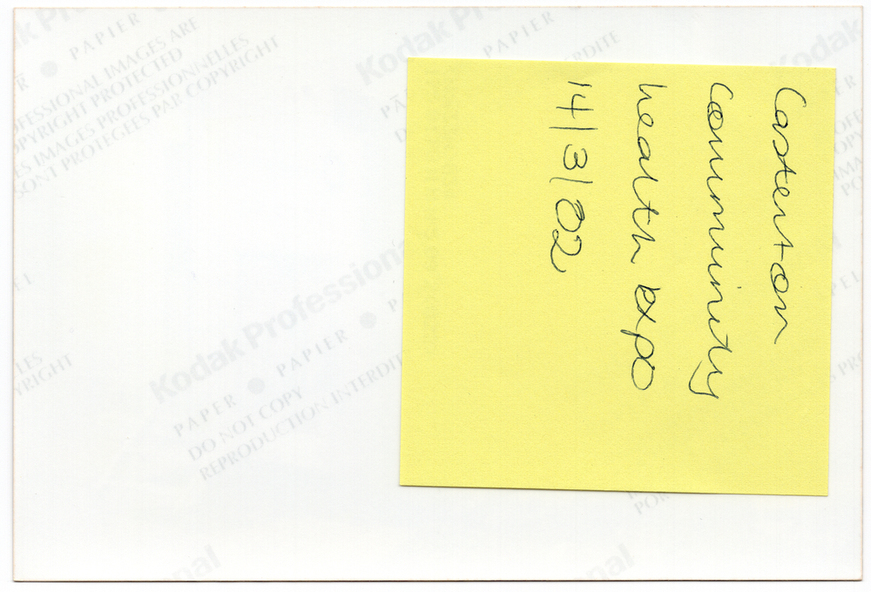 Casterton
community
health expo
14/3/02
Kodak Professional
PAPER • PAPIER
DO NOT COPY
REPRODUCTION INTERDITE
PROFESSIONAL IMAGES ARE
COPYRIGHT PROTECTED
LES IMAGES PROFESSIONNELLES
SONT PROTÉGÉES PAR COPYRIGHT